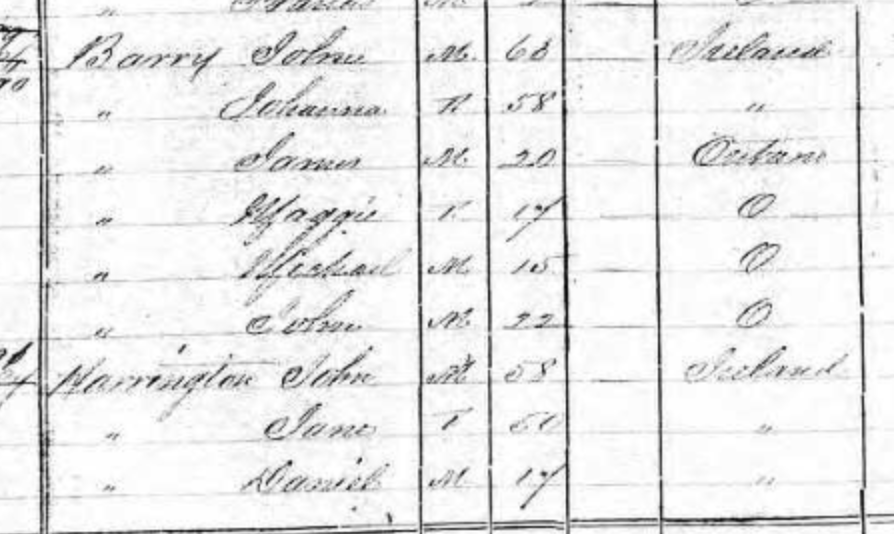 Barry John M. 68 Ireland
" Johanna F 58 "
" James M 20 Ontario
" Maggie F 17 O
" Michael M 15 O
" John M 22 O
Harrington John M 58 Ireland
" Jane F 50 "
" Daniel M 17 "